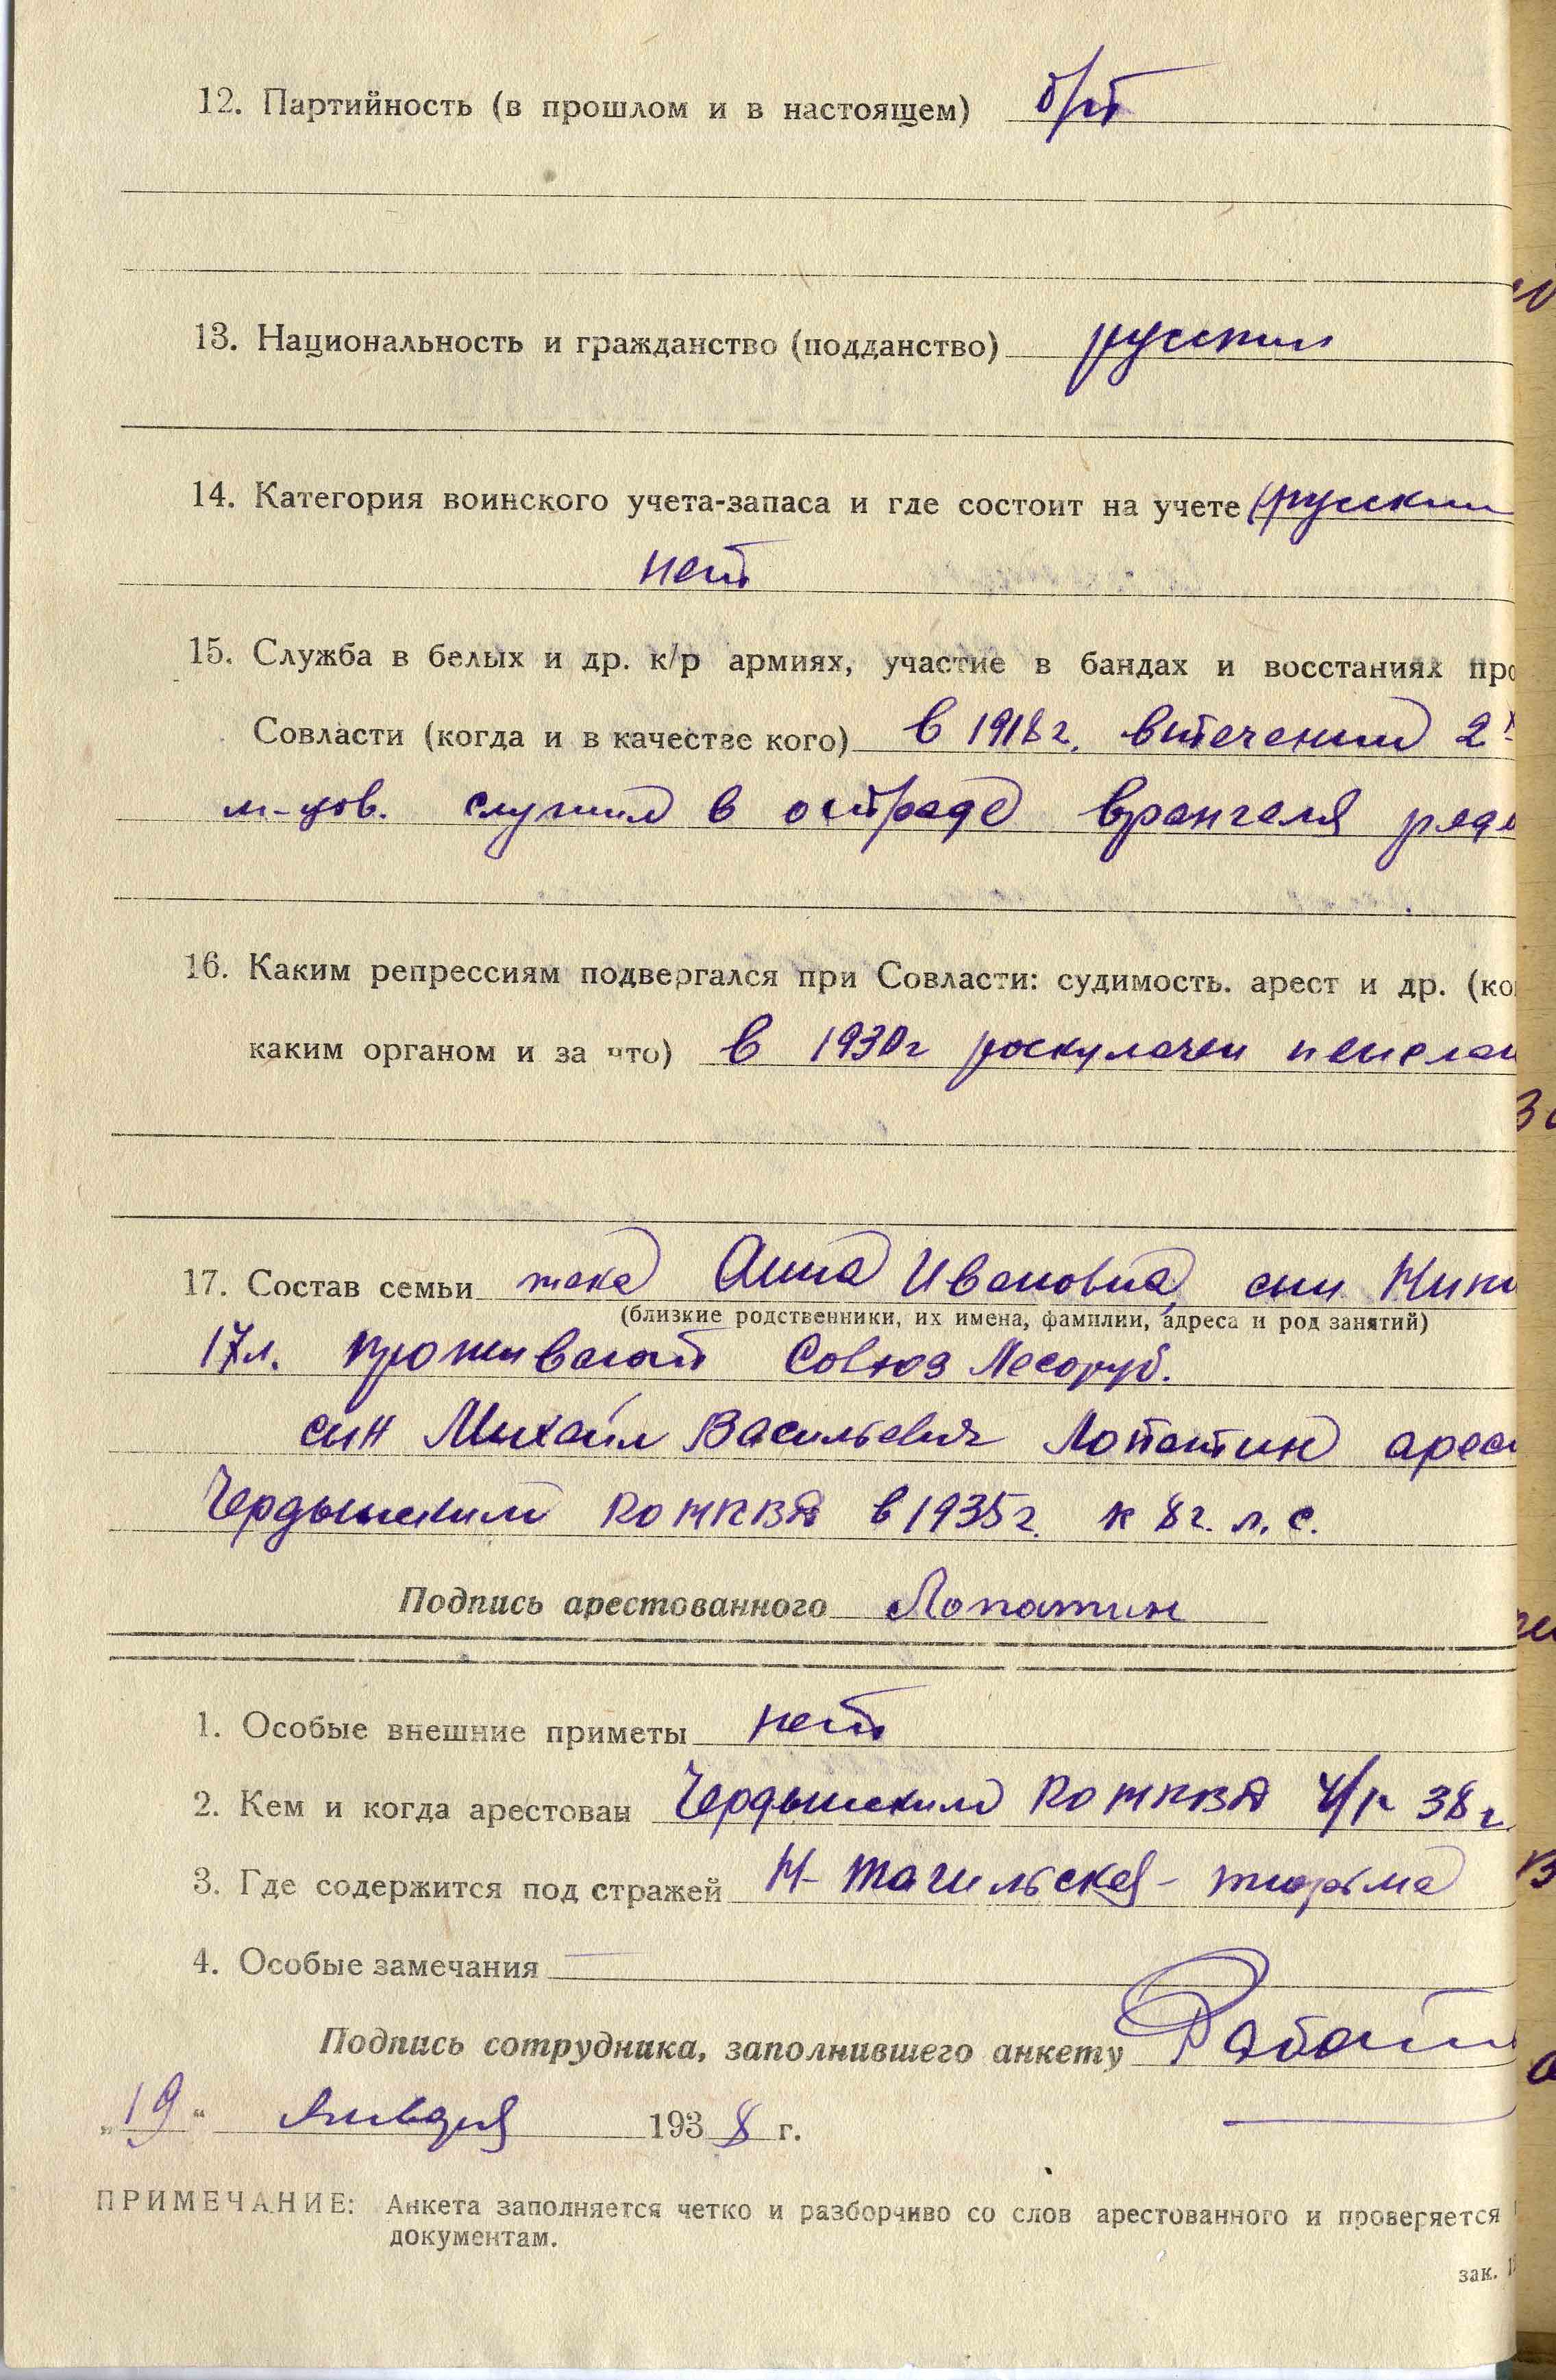 12. Партийность (в прошлом и в настоящем) б/п
13. Национальность и гражданство (подданство) русский
14. Категория воинского учета-запаса и где состоит на учете русский
нет
15. Служба в белых и др. к/р армиях, участие в бандах и восстаниях про
Совласти (когда и в качестве кого) в 1918 г. втечении 2х
м-цов. служил в отраде врангеля ряд
16. Каким репрессиям подвергался при Совласти: судимость. арест и др. (ко
каким органом и за что) в 1930 г роскулачен
17. Состав семьи жена Анна Ивановна, сын
(близкие родственники, их имена, фамилии, адреса и род занятий)
17 л. проживают Совюз Лесоруб.
сын Михаил Васильевич Лопатин арес
Чердынским РОНКВД в 1935 г. к 8 г. л. с.
Подпись арестованного Лопатин
1. Особые внешние приметы нет
2. Кем и когда арестован Чердынским РОНКВД 4/I- 38 г.
3. Где содержится под стражей Н-Тагильская - тюрьма
4. Особые замечания
Подпись сотрудника, заполнившего анкету
„19“ Января 1938 г.
ПРИМЕЧАНИЕ: Анкета заполняется четко и разборчиво со слов арестованного и проверяется
документам.
зак.